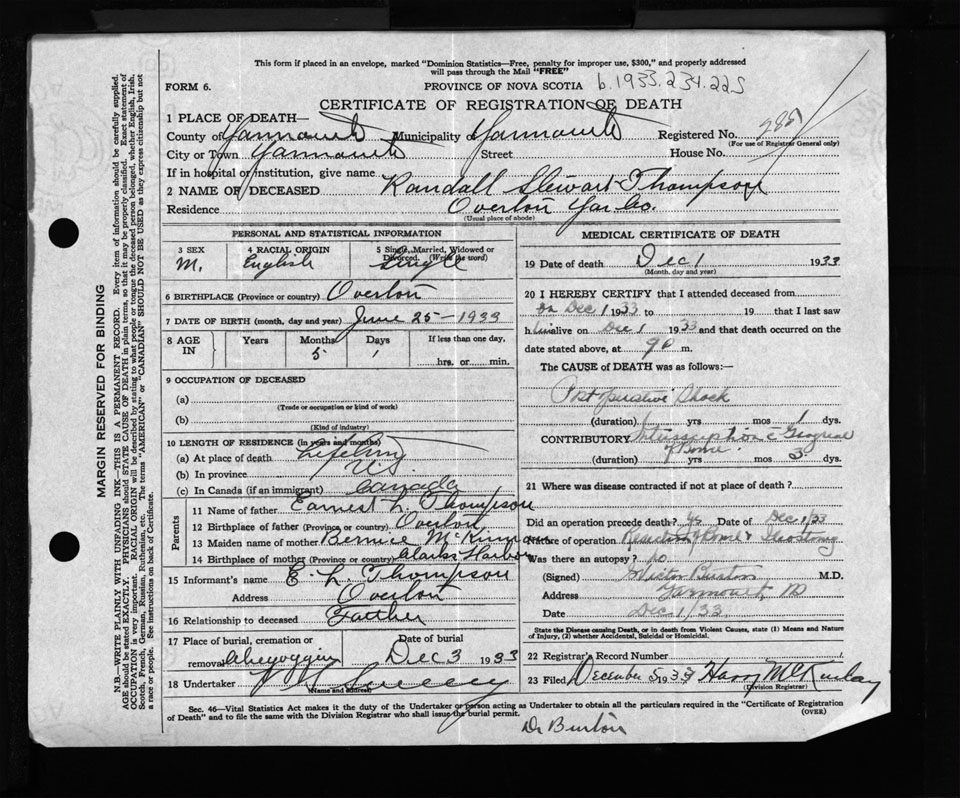 This form if placed in an envelope, marked "Dominion Statistics—Free, penalty for improper use, $300," and properly addressed
will pass through the Mail "FREE"
b.1933.234.225
FORM 6.
PROVINCE OF NOVA SCOTIA
CERTIFICATE OF REGISTRATION OF DEATH
1 PLACE OF DEATH—
County of Yarmouth Municipality Yarmouth Registered No.
(For use of Registrar General only)
City or Town Yarmouth Street House No.
If in hospital or institution, give name
2 NAME OF DECEASED Randall Stewart Thompson
Residence Overton Yar. Co.
(Usual place of abode)
PERSONAL AND STATISTICAL INFORMATION
3 SEX 4 RACIAL ORIGIN 5 Single, Married, Widowed or Divorced. (Write the word)
M. English Single
6 BIRTHPLACE (Province or country) Overton
7 DATE OF BIRTH (month, day and year) June 25-1933
8 AGE IN Years Months Days If less than one day,
5 1 hrs. or min.
9 OCCUPATION OF DECEASED
(a)
(Trade or occupation or kind of work)
(b)
(Kind of industry)
10 LENGTH OF RESIDENCE (in years and months)
(a) At place of death Lifetime
(b) In province N.S.
(c) In Canada (if an immigrant) Canada
Parents
11 Name of father Earnest L. Thompson
12 Birthplace of father (Province or country) Overton
13 Maiden name of mother Bernice McKinnon
14 Birthplace of mother (Province or country) Clarks Harbor
15 Informant's name E. L. Thompson
Address Overton
16 Relationship to deceased Father
17 Place of burial, cremation or removal Date of burial
Chegoggin Dec 3 1933
18 Undertaker Sweeny
(Name and address)
MEDICAL CERTIFICATE OF DEATH
19 Date of death Dec 1 1933
(Month, day and year)
20 I HEREBY CERTIFY that I attended deceased from
on Dec 1 1933 to 19 that I last saw
h im alive on Dec 1 1933 and that death occurred on the
date stated above, at 9 p m.
The CAUSE of DEATH was as follows:—
Post operative Shock
(duration) yrs mos 1 dys.
CONTRIBUTORY Intussusception c Gangrene
of Bowel
(duration) yrs mos 3 dys.
21 Where was disease contracted if not at place of death?
Did an operation precede death? Yes Date of Dec 1/33
Nature of operation Resection of Bowel & Ileostomy
Was there an autopsy? no
(Signed) G Victor Burton M.D.
Address Yarmouth NS
Date Dec 1/33
State the Disease causing Death, or in death from Violent Causes, state (1) Means and Nature
of Injury, (2) whether Accidental, Suicidal or Homicidal.
22 Registrar's Record Number
23 Filed December 5 1933 Harry McKinlay
(Division Registrar)
Sec. 46—Vital Statistics Act makes it the duty of the Undertaker or person acting as Undertaker to obtain all the particulars required in the "Certificate of Registration
of Death" and to file the same with the Division Registrar who shall issue the burial permit.
(OVER)
Dr Burton
MARGIN RESERVED FOR BINDING
N.B.—WRITE PLAINLY WITH UNFADING INK—THIS IS A PERMANENT RECORD. Every item of information should be carefully supplied.
AGE should be stated EXACTLY. PHYSICIANS should STATE CAUSE OF DEATH in plain terms, so that it may be properly classified. Exact statement of
OCCUPATION is very important. RACIAL ORIGIN will be described by stating to what people or tongue the deceased person belonged, whether English, Irish,
Scotch, French, German, Russian, Ruthenian, etc. The terms "AMERICAN" or "CANADIAN" SHOULD NOT BE USED as they express citizenship but not
a race or people. See instructions on back of Certificate.